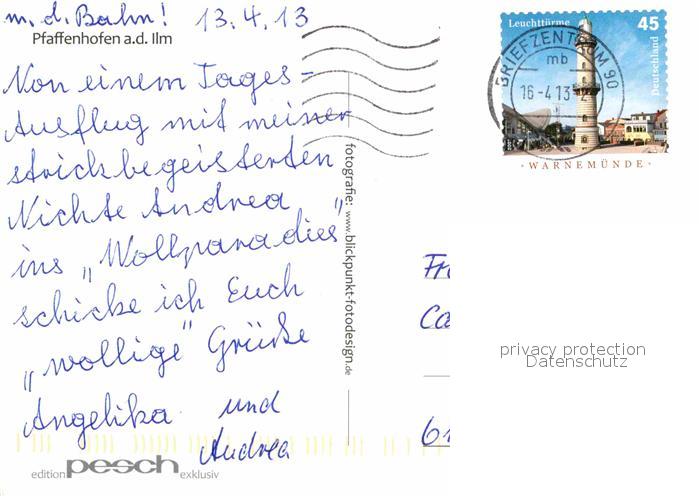 m. d. Bahn! 13.4.13
Pfaffenhofen a.d. Ilm
Von einem Tages-
Ausflug mit meiner
strickbegeisterten
Nichte Andrea
ins „Wollparadies"
schicke ich Euch
„wollige" Grüße
Angelika und
Andrea
edition pesch exklusiv
fotografie: www.blickpunkt-fotodesign.de
Leuchttürme 45
Deutschland
BRIEFZENTRUM 90
mb
16-4 13
WARNEMÜNDE
Fr
Ca
61
privacy protection
Datenschutz